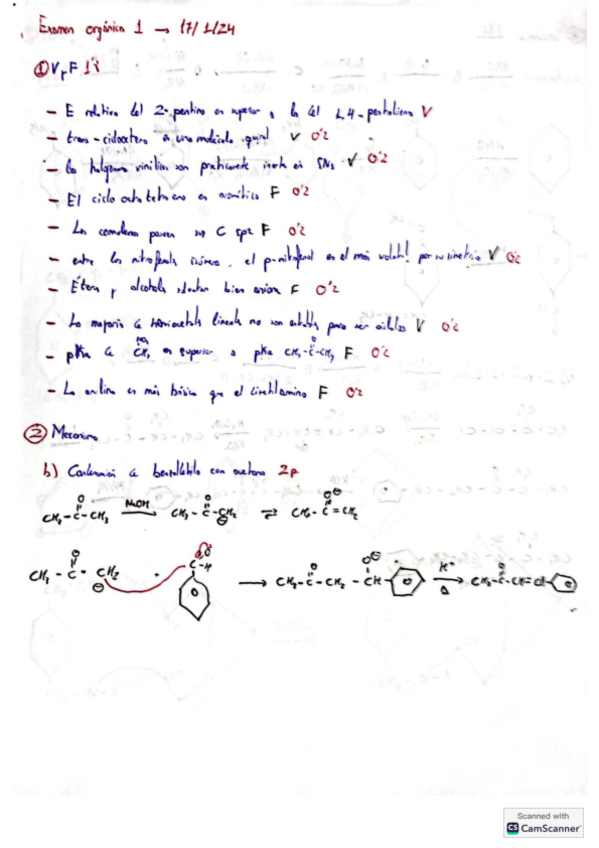 Examen orgánica 1 → 17/1/24
① V y F 1'8
- E relativa del 2-pentino es superior a la del 1,4-pentadieno V
- trans-cicloocteno es una molécula quiral V 0'2
- los halógenos vinílicos son prácticamente inerte en SN1 V 0'2
- El ciclooctatetraeno es aromático F 0'2
- Los cumulenos poseen C sp2 F 0'2
- entre los nitrofenoles isómeros, el p-nitrofenol es el más volátil por su simetría V 0'2
- Éteres y alcoholes bien F 0'2
- La mayoría de hemiacetales lineales no son estables para ser aislados V 0'2
- pKa de CH3 NO2 es superior a pKa CH3-C-CH3 O F 0'2
- La anilina es más básica que el F 0'2
② Mecanismo
b) Condensación de benzaldehído con acetona 2p
O O O⊖
CH3-C-CH3 NaOH → CH3-C-CH2 ⊖ ⇌ CH3-C=CH2
CH3-C-CH2 ⊖ + O C-H → CH3-C-CH2-CH O⊖ H+ Δ → CH3-C-CH=CH
Scanned with
CS CamScanner